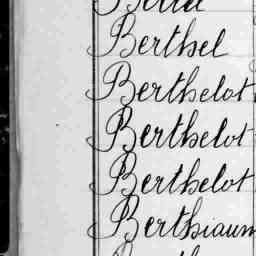 Berthel
Berthelot
Berthelot
Berthelot
Berthiaum